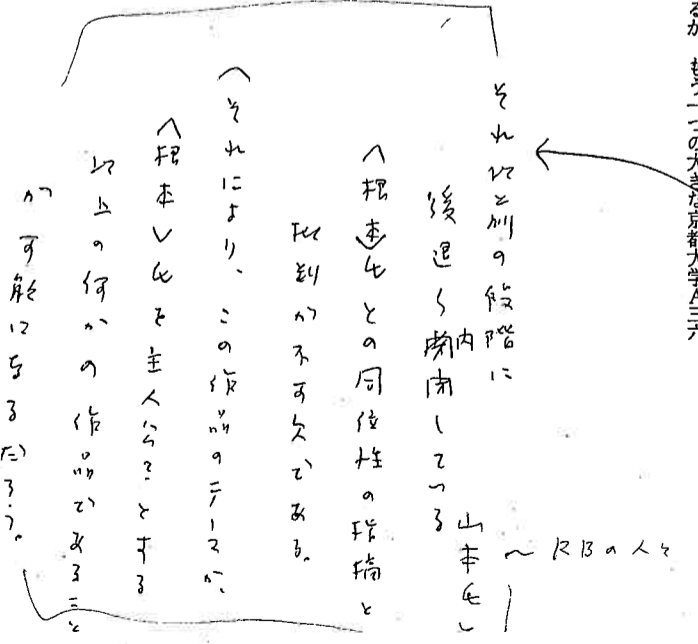 るが、もう一つの大きな京都大学A三六
それ以と別の段階に
後退〜内閉している
山本氏し
〜RBの人々
〈根本〉氏との同位性の指摘と
批判が不可欠である。
(それにより、この作品のテーマが、
〈根本〉氏を主人公?とする
以上の何かの作品であること
が可能になるだろう。